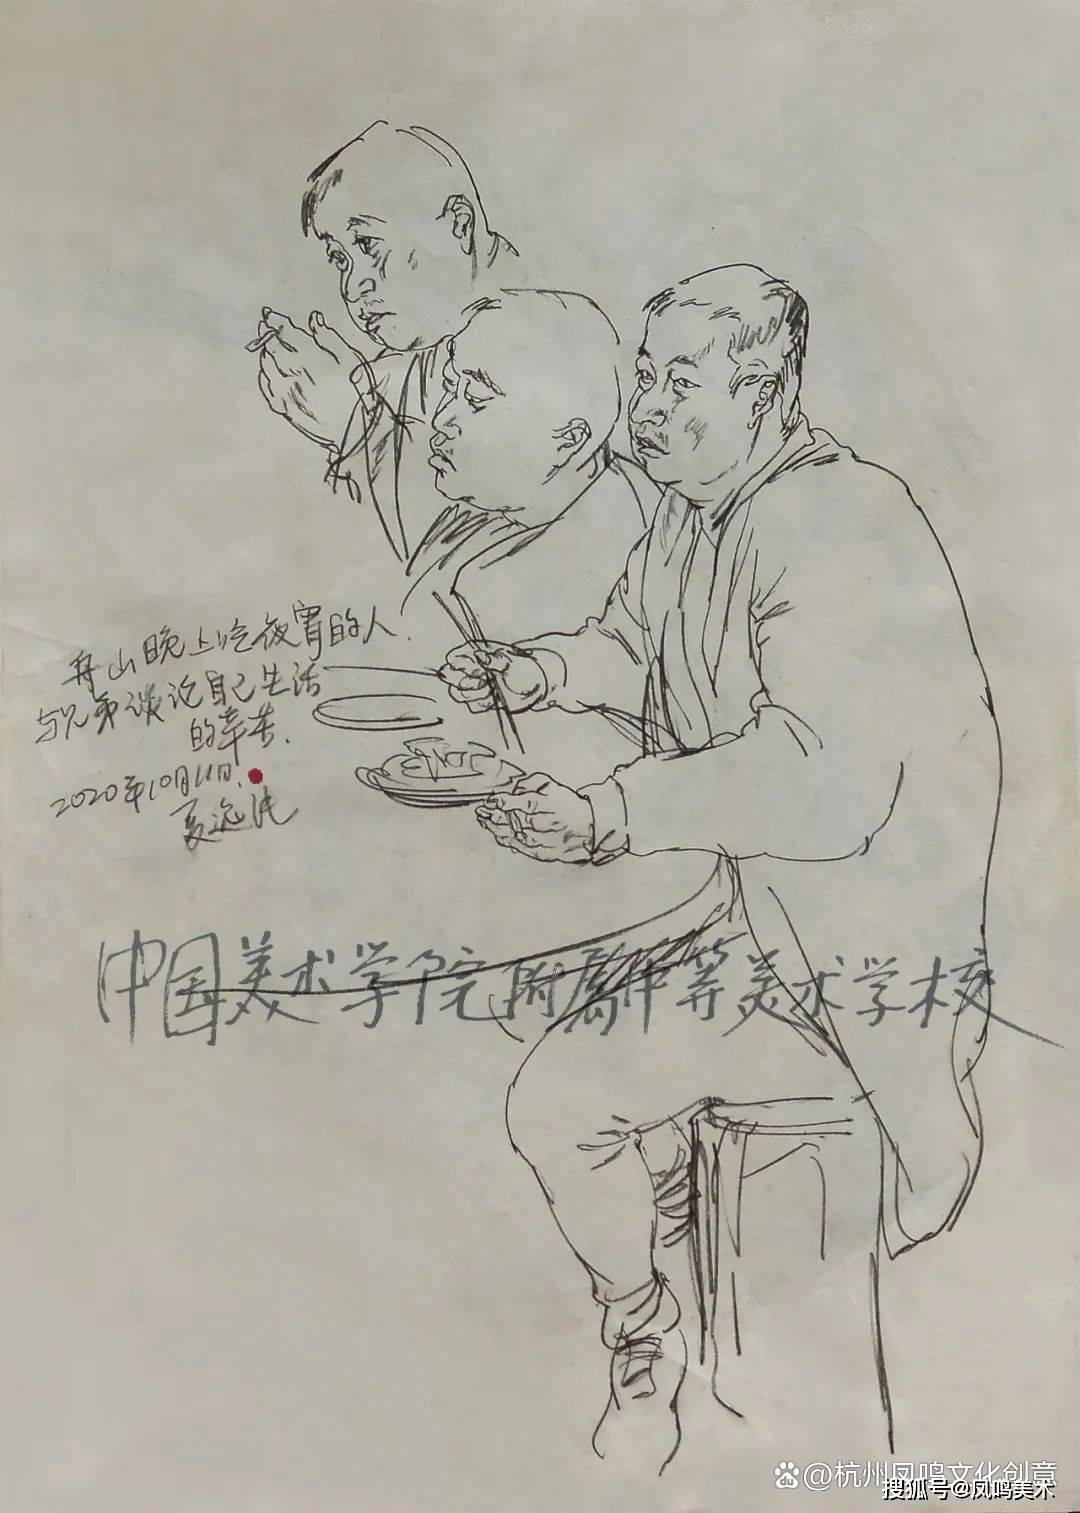 舟山晚上吃夜宵的人.
与兄弟谈论自己生活
的辛苦.
2020年10月11日.
夏远
中国美术学院附属中等美术学校
@杭州凤鸣文化创意
搜狐号@凤鸣美术